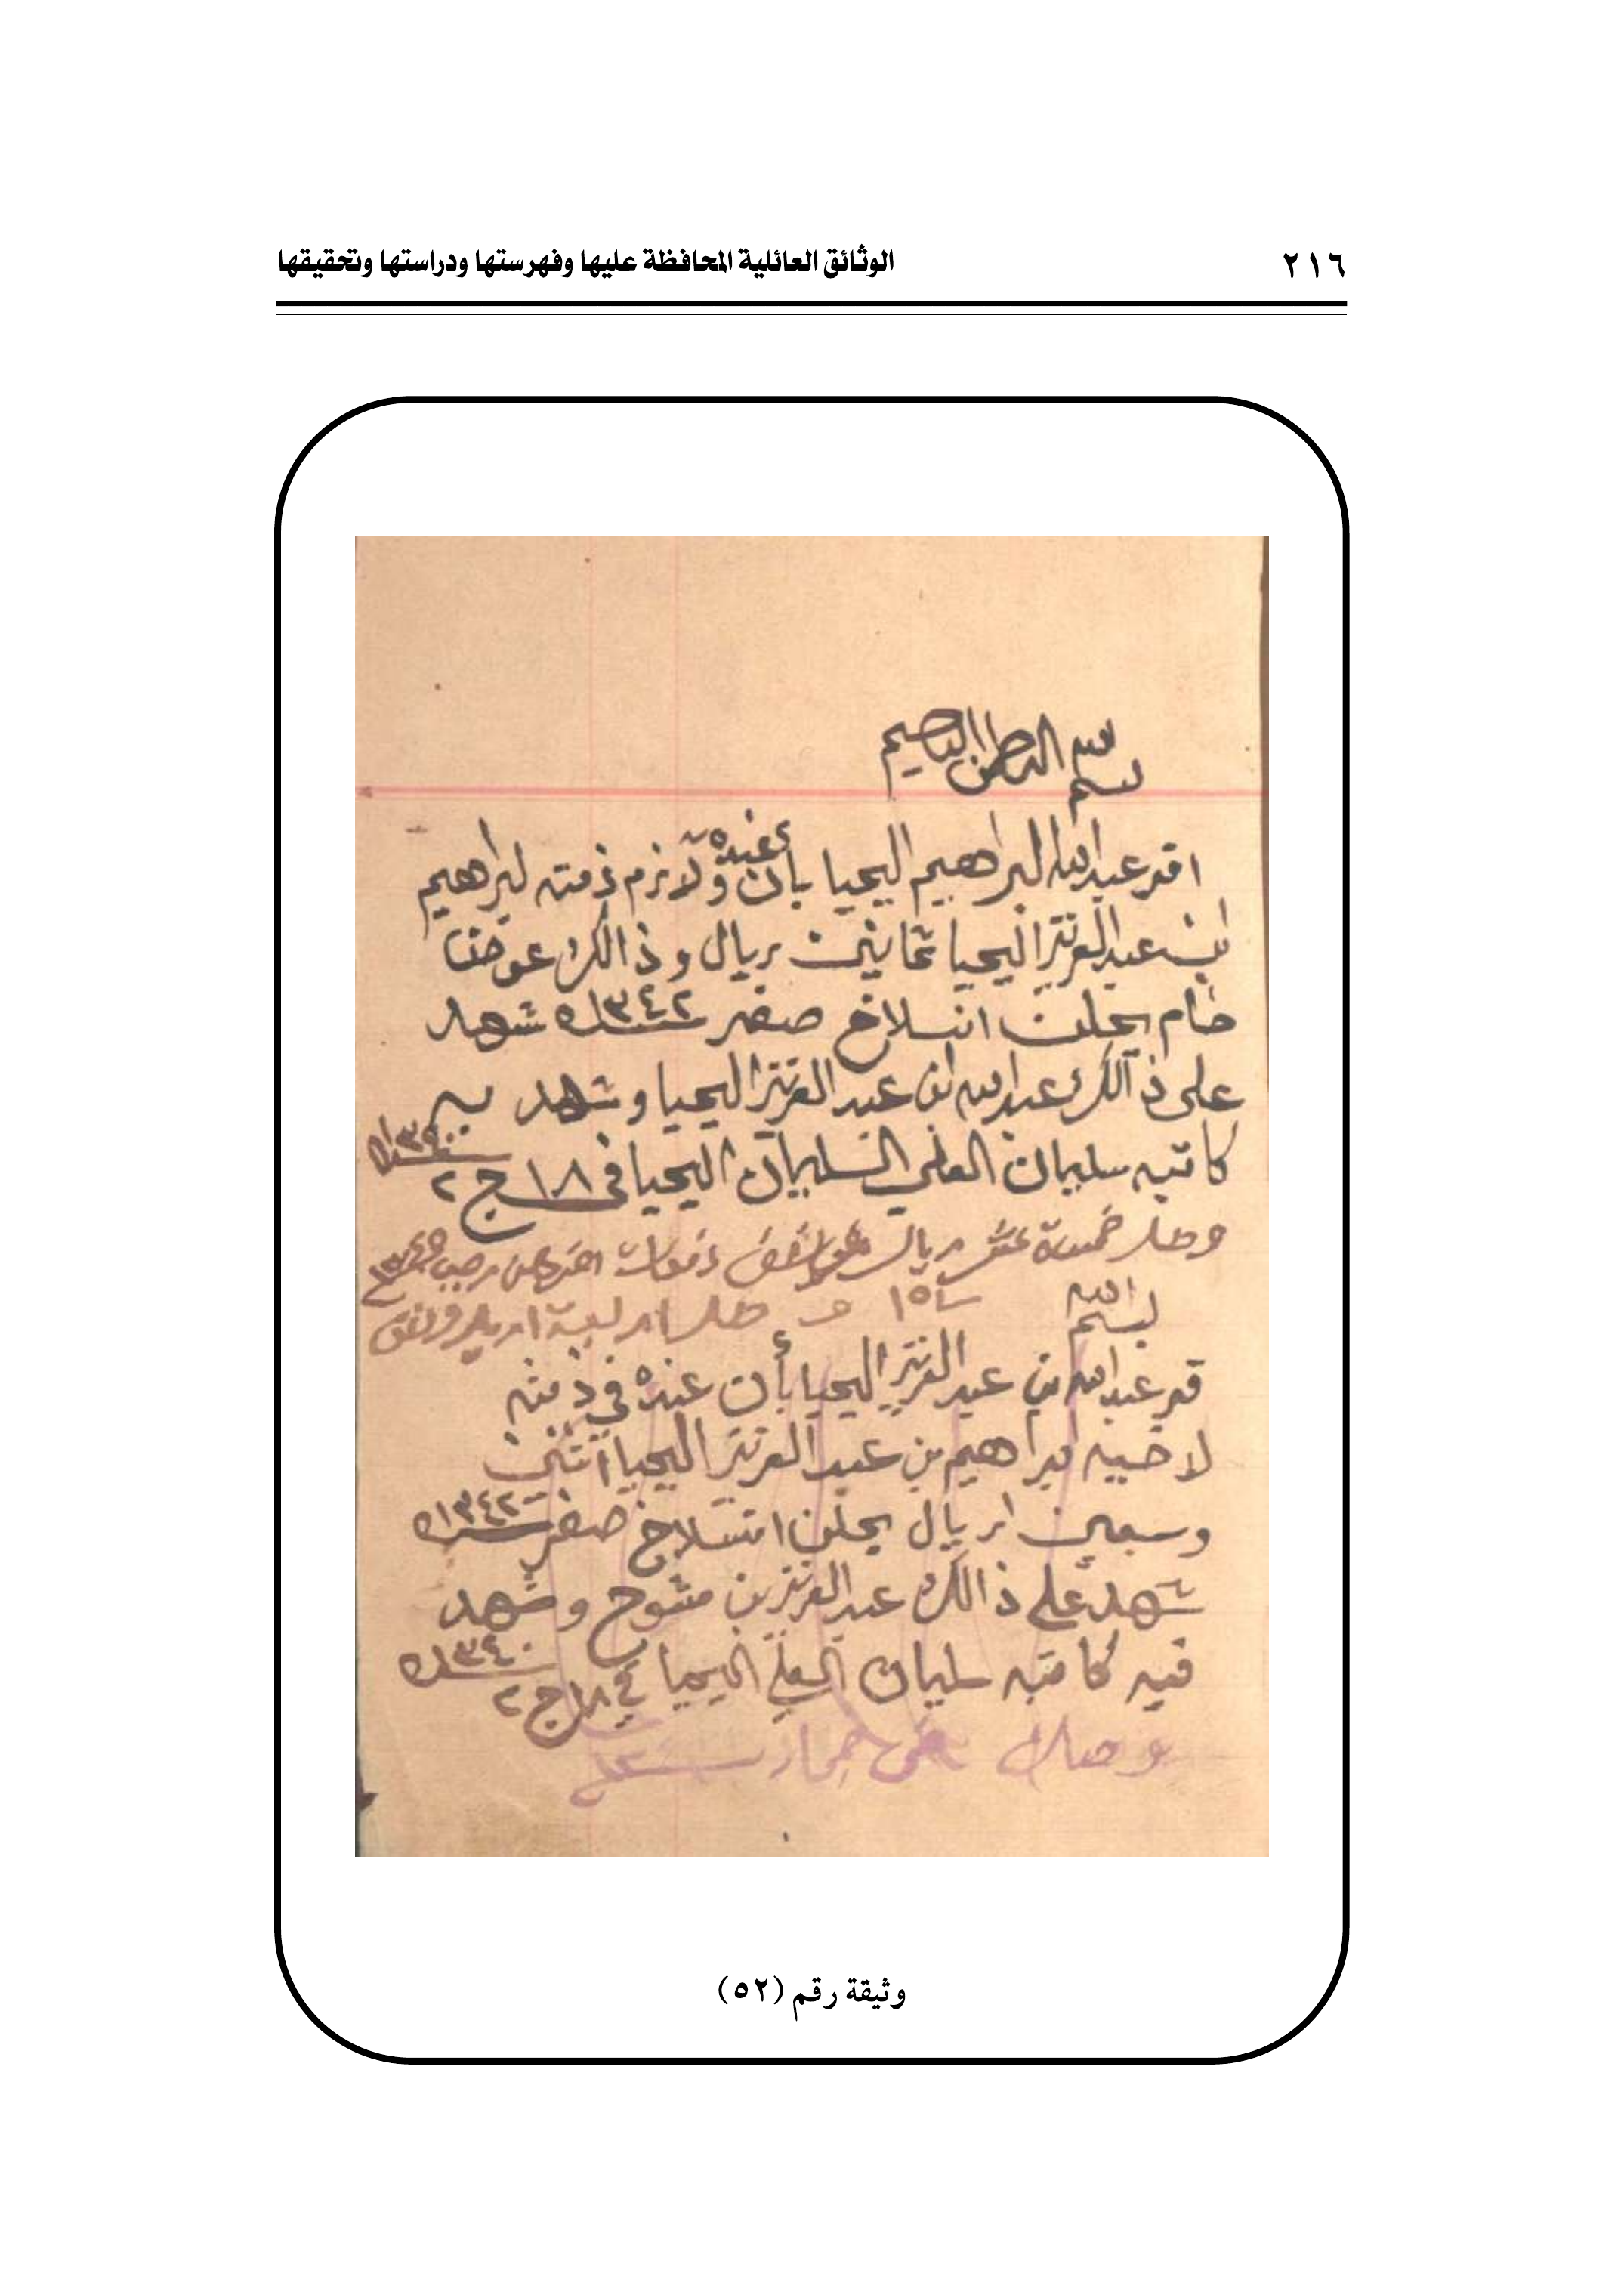 ٢١٦ الوثائق العائلية المحافظة عليها وفهرستها ودراستها وتحقيقها
بسم الله الرحمن الرحيم
اقر عبدالله البراهيم اليحيا بأن عنده ولازم ذمته لبراهيم
ابن عبدالعزيز اليحيا ثمانين ريال وذالك عوض
خام يحلن انسلاخ صفر سنة ١٣٤٢ه شهد
على ذالك عبدالله ابن عبد العزيز اليحيا وشهد به
كاتبه سليمان العلي السليمان اليحيا في ١٨ ج ٢ ١٣٤٠ه
وصل خمسة عشر ريال دفعات اخرهن رجب
١٥ وصل اربعة اريل
بسم الله
قر عبدالله بن عبد العزيز اليحيا بأن عنده في ذمته
لاخيه ابراهيم بن عبد العزيز اليحيا اثنين
وسبعين اريال يحلن انسلاخ صفر سنة ١٣٤٢ه
شهد على ذالك عبدالعزيز بن مشوح وشهد
فيه كاتبه سليمان العلي اليحيا في ١٨ ج ٢ ١٣٤٠ه
وصل
وثيقة رقم (٥٢)